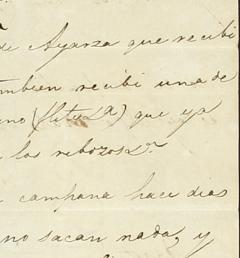 de Ayarza que recibi
tambien recibi una de
que ya
los rebozos
campana hace dias
no sacan nada, y